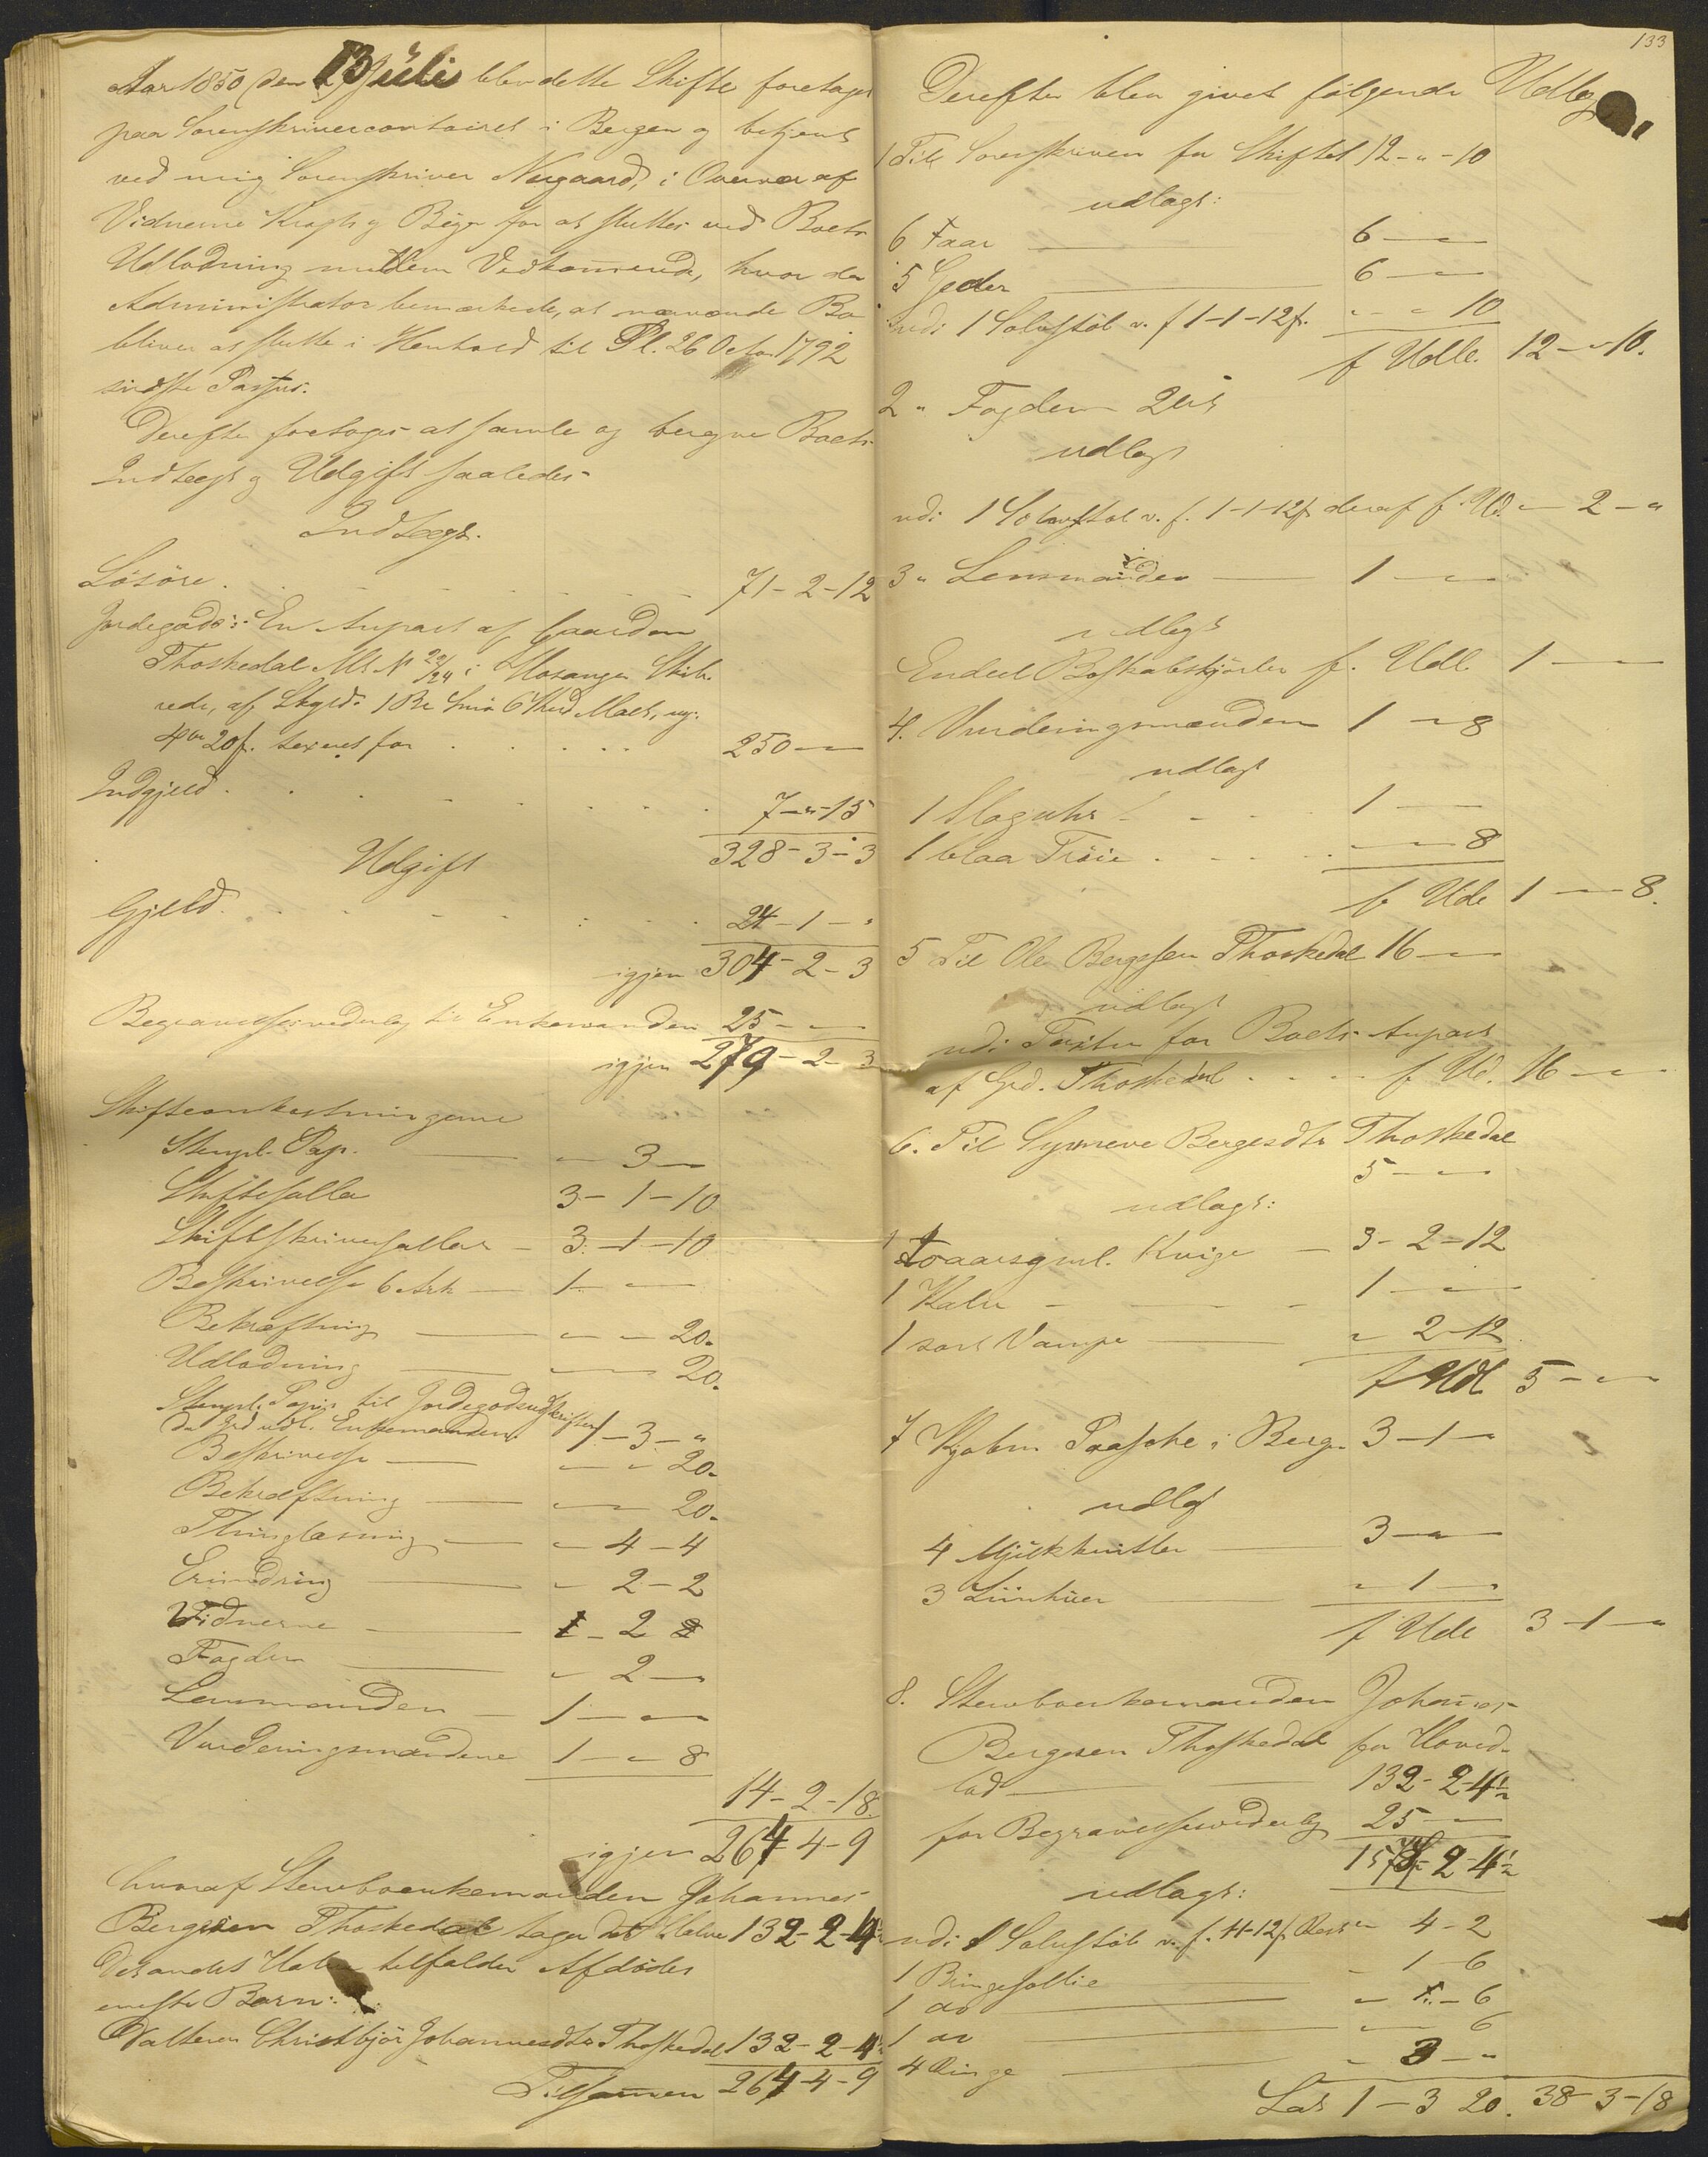 Aar 1850 den 13 Juli blev dette Skifte foretaget
paa Sorenskrivercontoiret i Bergen og betjent
ved mig Sorenskriver Norgaard, i Overvær af
Vidnerne Krogh og Böge for at sluttes med Boets
Udlodning mellem Vedkommende, hvor da
Administrator bemærkede, at nærværende Bo
bliver at slutte i Henhold til Pl. 26 Octbr 1792
sidste Passus.
Derefter foretoges at samle og beregne Boets
Indtægt og Udgift saaledes
Indtægt.
Lösöre. 71-2-12
Jordegods: En Anpart af Gaarden
Thoskedal M. N 29/24 i Hosanger Skib-
rede, af Skyld 1 Bpd Smör 6 Skd Malt, ny:
4 ort 20 s. taxeret for 250 - -
Indgjeld. 7-"-15
328-3-3
Udgift
Gjeld. 24-1-"
igjen 304-2-3
Begravelsesvederlag til Enkemanden 25 - -
igjen 279-2-3
Skifteomkostningerne
Stempl. Pap. " 3 -
Skiftesallær 3-1-10
Skiftskriversallær 3-1-10
Beskrivelse 6 Ark 1 - -
Bekræftning - - 20.
Udlodning - - 20.
Stempl. Papir til Jordegodsudskriften
da Grd udl. Enkemanden 1-3-"
Beskrivelse - - 20.
Bekræftning - - 20.
Thinglæsning - 4-4
Erindring - 2-2
Vidnerne - 2
Fogden - 2 -
Lensmanden 1 - -
Vurderingsmændene 1 - 8
14-2-18
igjen 264-4-9
hvoraf Stervboenkemanden Johannes
Bergesen Thoskedal tager det Halve 132-2-4½
Det andet Halve tilfalder Afdödes
eneste Barn:
Datteren Christbjör Johannesdtr Thoskedal 132-2-4½
Tilsammen 264-4-9
133
Derefter blev givet følgende Udlæg
1 Til Sorenskriveren for Skiftet 12-"-10
udlagt:
6 Faar 6 - -
5 Geder 6 - -
udi 1 Solvstöb v. f 1-1-12 s. - - 10
f Udl. 12 - " - 10.
2 " Fogden 2 Ort
udlagt
udi 1 Solvstöb v. f. 1-1-12 s deraf f. Ud. - 2 - "
3 " Lensmanden 1 - -
udlagt
Endeel Boskabskjörler f. Udl. 1 - -
4. Vurderingsmændene 1 - 8
udlagt
1 Slaguhr 1 - -
1 blaa Tröie - - 8
f Udl 1 - - 8.
5 Til Ole Bergesen Thoskedal 16 - -
udlagt
udi Taxten for Boets Anpart
af Grd. Thoskedal f Ud. 16 - -
6. Til Synneve Bergesdtr Thoskedal
5 - -
udlagt:
1 toaarsgml. Kvige 3-2-12
1 Kalv 1 - -
1 sort Vampe " 2-12
f Udl 5 - -
7 Kjøbm Paasche i Bergen 3-1-"
udlagt
4 Mjelkkoitter 3 - -
3 - 1 -
f Udl 3-1-"
8. Stervboenkemanden Johannes
Bergesen Thoskedal for Hoved-
lod 132-2-4½
for Begravelsesvederlag 25 - -
157-2-4½
udlagt:
udi 1 Solvstöb v. f. Rest - 4-2
1 - 1-6
1 do - - 6
1 do - - 6
4 Ringe - 3 - "
Lat 1-3 20. 38-3-18